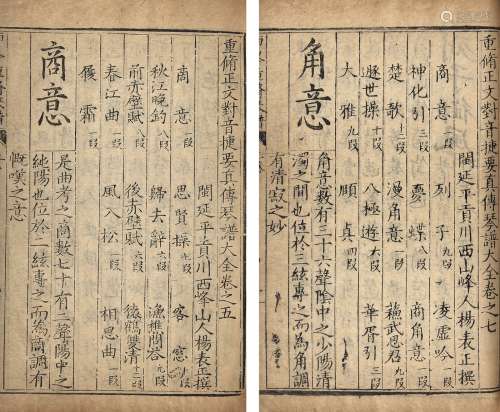 重脩正文對音捷要真傳琴譜大全卷之七
閩延平貢川西山峰人楊表正撰
商意一段 列子九段 凌虛吟一段
神化引三段 夢蝶八段 商角意一段
楚歌八段 漫角意一段 蘇武思君九段
遯世操十段 八極遊六段 華胥引三段
大雅九段 順真四段
角意
角意數有三十六聲陰中之少陽清
濁之間也位於三絃專之而為角調
有清寂之妙
重脩正文對音捷要真傳琴譜大全卷之五
閩延平貢川西峰山人楊表正撰
商意一段 思賢操 客窓
秋江晚釣八段 歸去辭 漁樵問荅
前赤壁賦八段 後赤壁賦 猿鶴雙清九段
春江曲一段 風入松一段 相思曲一段
履霜一段
商意
是曲考之商數七十有二聲陽中之
純陽也位於二絃專之而為商調有
慨嘆之意